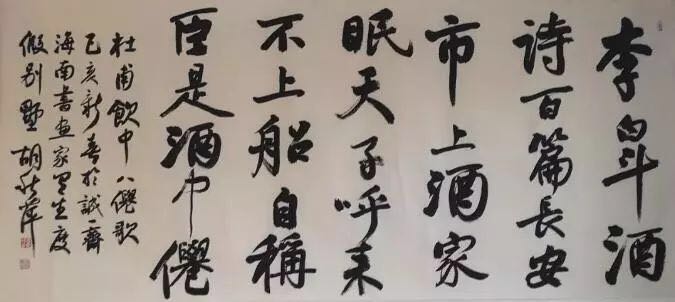 李白斗酒
诗百篇長安
市上酒家
眠天子呼来
不上船自稱
臣是酒中僊
杜甫飲中八僊歌
己亥新春於誠齋
海南書画家写生度
假别墅 胡秋萍